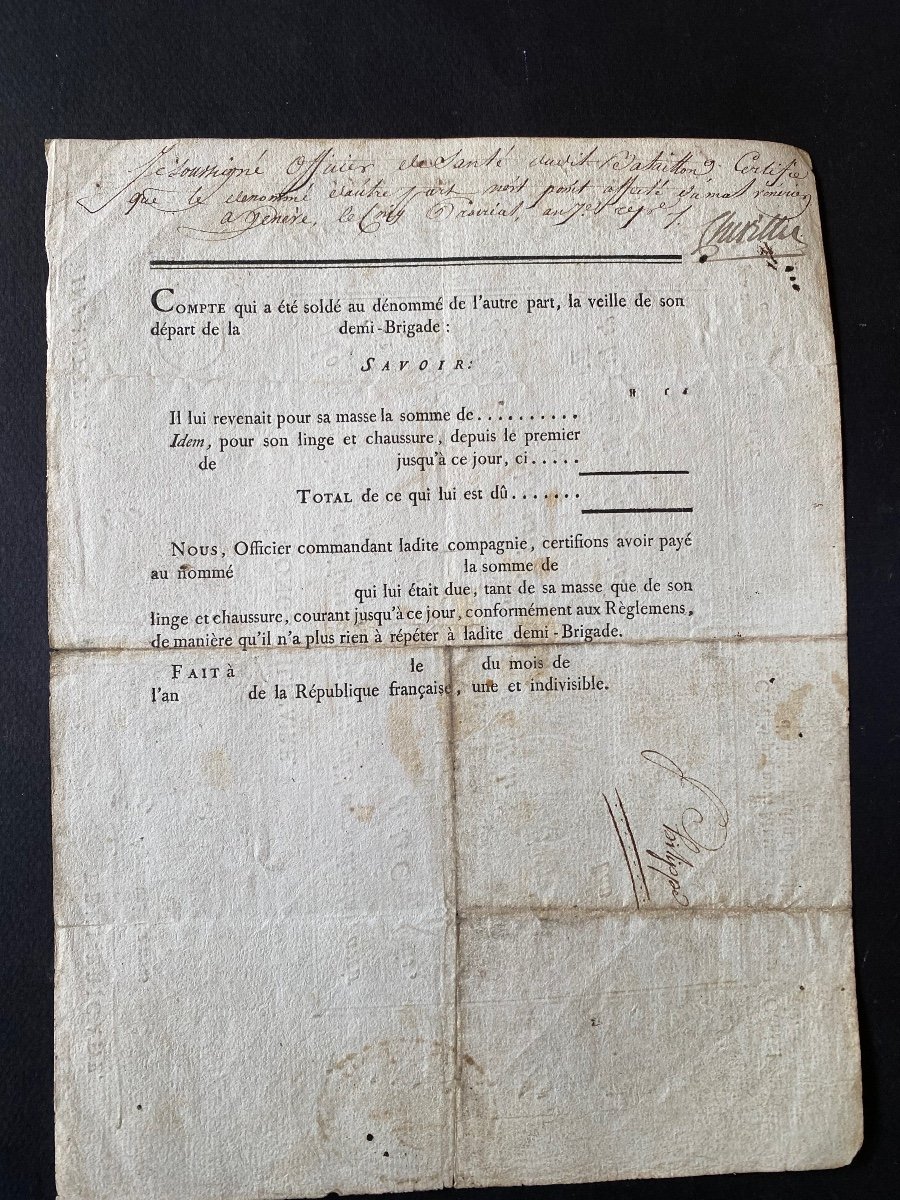 Je soussigné Officier de Santé dudit Bataillon Certifie
que le denommé d'autre part n'est point affecté du mal
a Genève, le Prairéal, an 7e
COMPTE qui a été soldé au dénommé de l'autre part, la veille de son
départ de la demi-Brigade :
SAVOIR:
Il lui revenait pour sa masse la somme de..........
Idem, pour son linge et chaussure, depuis le premier
de jusqu'à ce jour, ci.....
TOTAL de ce qui lui est dû.......
NOUS, Officier commandant ladite compagnie, certifions avoir payé
au nommé la somme de
qui lui était due, tant de sa masse que de son
linge et chaussure, courant jusqu'à ce jour, conformément aux Règlemens,
de manière qu'il n'a plus rien à répéter à ladite demi-Brigade.
FAIT à le du mois de
l'an de la République française, une et indivisible.
Philippe